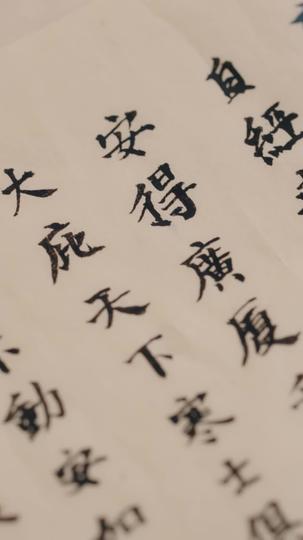 自經
安得廣厦
大庇天下寒士俱
動安如